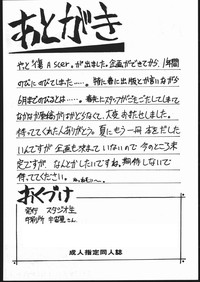 あとがき
やっと A scer. が出ました。企画ができてから、1年間
のびにのびてしまい……。特に春に出版とか言いながら
6月までのびるとは……。春先にスタッフがごたごたしてしまって
なかなか原稿があがらなくて、大変お待たせしました。
待っててくれた人ありがとう。夏にもう一冊本をだした
いんですが企画も決まっていないので今のところ未
定ですが、なんとかしたいですね。期待しないで
待っててください。
おくづけ
発行 スタジオ
印刷所 さん
成人指定同人誌